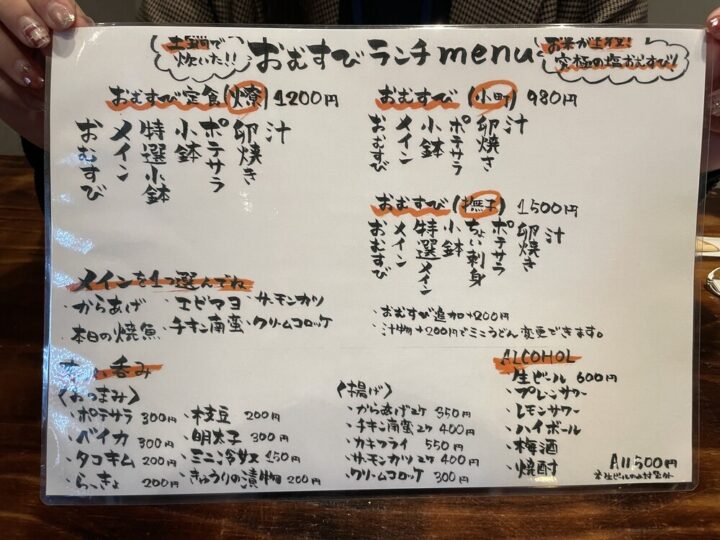 土鍋で
炊いた!!
おむすびランチmenu
お米が主役!
究極の塩おむすび!
おむすび定食(燎)1200円
おむすび
メイン
特選小鉢
小鉢
ポテサラ
卵焼き
汁
おむすび(小町)980円
おむすび
メイン
小鉢
ポテサラ
卵焼き
汁
おむすび(撫子)1500円
おむすび
メイン
特選メイン
小鉢
ちょい刺身
ポテサラ
卵焼き
汁
メインを1つ選んでね
・からあげ ・エビマヨ ・サーモンカツ
・本日の焼魚 ・チキン南蛮 ・クリームコロッケ
・おむすび追加+200円
・汁物+200円でミニうどん変更できます。
呑み
〈おつまみ〉
・ポテサラ 300円 ・枝豆 200円
・ベイカ 300円 ・明太子 300円
・タコキム 200円 ・ミニ冷奴 150円
・らっきょ 200円 ・きゅうりの漬物 200円
〈揚げ〉
・からあげ2ケ 350円
・チキン南蛮2ケ 400円
・カキフライ 550円
・サーモンカツ2ケ 400円
・クリームコロッケ 300円
ALCOHOL
・生ビール 600円
・プレンサワー
・レモンサワー
・ハイボール
・梅酒
・焼酎
All 500円